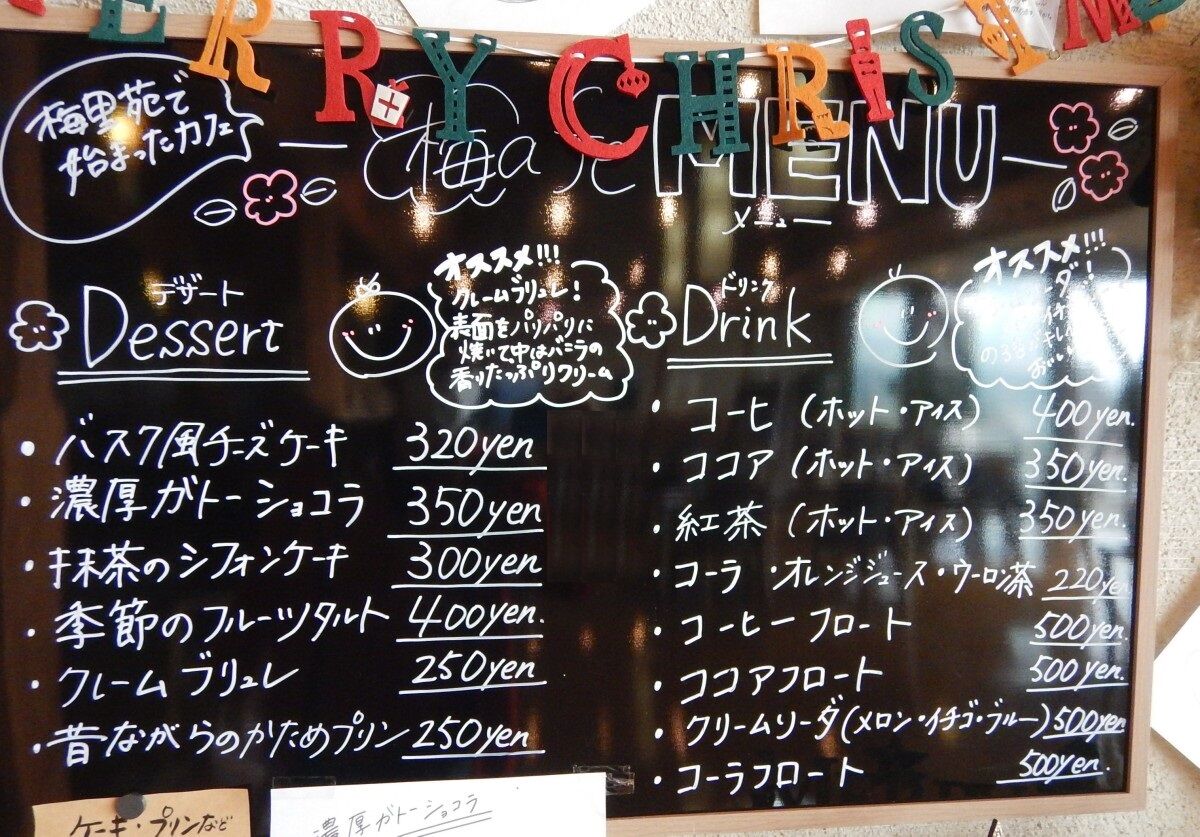 ERRY CHRISTM
梅里苑で
始まったカフェ
MENU
メニュー
デザート
Dessert
オススメ!!!
クレームブリュレ!
表面をパリパリに
焼いて中はバニラの
香りたっぷりクリーム
・バスク風チーズケーキ 320yen
・濃厚ガトーショコラ 350yen
・抹茶のシフォンケーキ 300yen
・季節のフルーツタルト 400yen.
・クレームブリュレ 250yen
・昔ながらのかためプリン 250yen
ドリンク
Drink
オススメ!!!
・コーヒ (ホット・アイス) 400yen.
・ココア (ホット・アイス) 350yen.
・紅茶 (ホット・アイス) 350yen.
・コーラ ・オレンジジュース・ウーロン茶 220yen
・コーヒーフロート 500yen.
・ココアフロート 500yen.
・クリームソーダ(メロン・イチゴ・ブルー) 500yen.
・コーラフロート 500yen.
ケーキ・プリンなど
濃厚ガトーショコラ